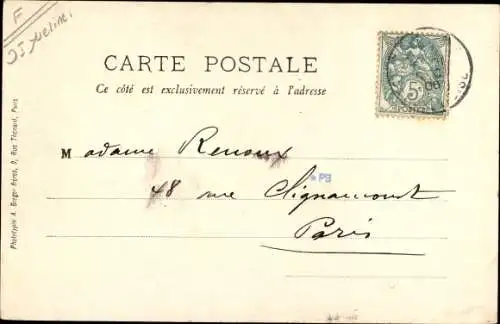 F
CARTE POSTALE
Ce côté est exclusivement réservé à l'adresse
Madame Renoux
48 rue Clignancourt
Paris
5c
POSTES
PB
Phototypie A. Berger frères, 9, Rue Thénard, Paris